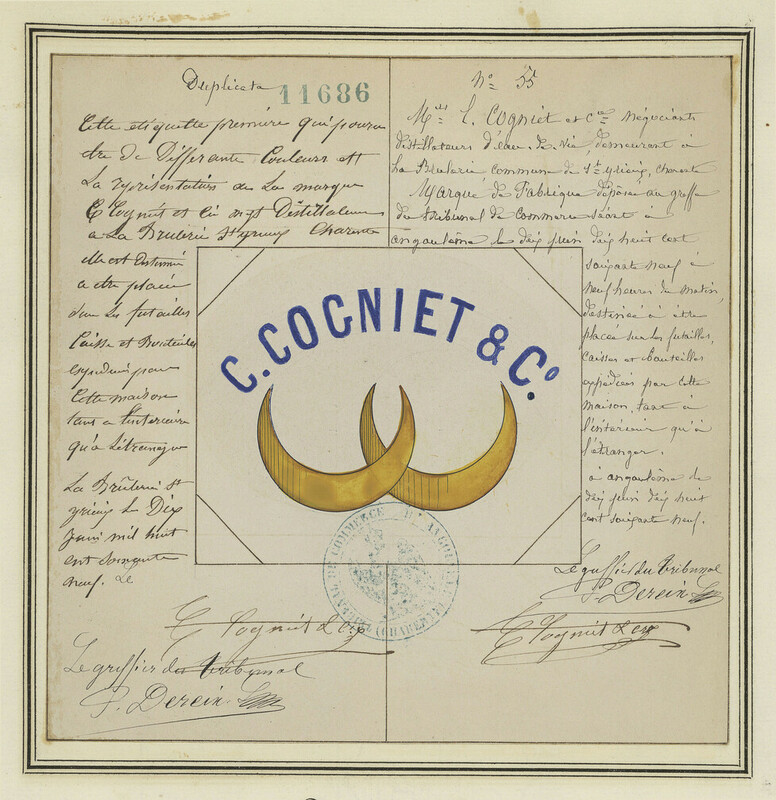 Duplicata 11686
Cette etiquette première qui pourra
etre de Differante Couleurs est
La représentation de La marque
C Cognét et Cie Distillateurs
a La Brulerie St yrieix Charente
elle est Destinné
a etre placée
sur Les futailles
Caisse et Bouteilles
expedieés pour
Cette maison
tans a L'interieure
qu'a L'étranger
La Brûlerie St
yrieix Le Dix
Juin mil huit
cent soixante
neuf. Le
C Cogniet & Cie
Le greffier du tribunal
P. Derein
No 55
Mrs C. Cogniet et Cie négociants
distillateurs d'eau-de-vie, demeurant à
La Brulerie, commune de St Yrieix, Charente
Marque de Fabrique déposée au greffe
du tribunal de Commerce séant à
angoulême le dix juin dix huit cent
soixante neuf à
neuf heures du matin,
destinée à être
placée sur les futailles,
caisses et bouteilles
expédiées par cette
maison, tant à
l'intérieur qu'à
l'étranger.
à angoulême le
dix juin dix huit
cent soixante neuf.
Le greffier du tribunal
P. Derein
C Cogniet & Cie
C. COGNIET & Co.
TRIBUNAL DE COMMERCE D'ANGOULÊME (CHARENTE)